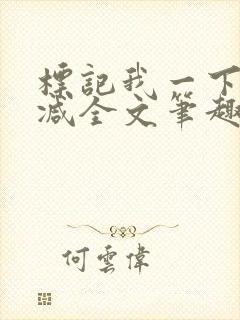 標記我一下
減全文筆趣
何雲偉